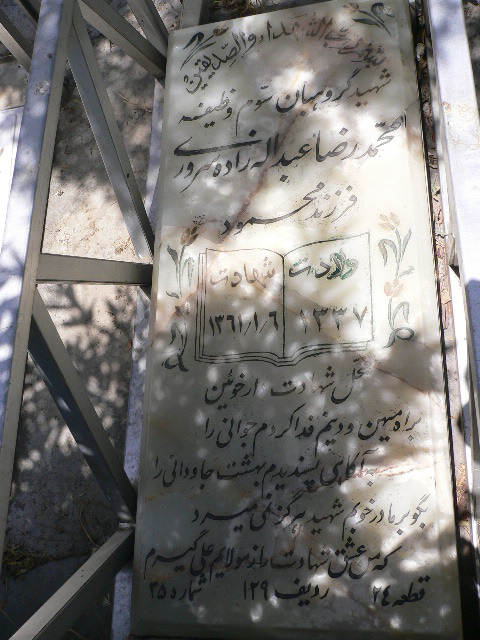 بسم رب الشهداء والصدیقین
شهید گروهبان سوّم وظیفه
محمد رضا عبداله زاده سروری
فرزند محمود
ولادت شهادت
۱۳۳۷ ۱۳۶۱/۱/۶
محل شهادت خونین
براه میهن و دینم فدا کردم جوانی را
به آگاهی پسندیدم بهشت جاودانی را
بگو بر مادر خوبم شهید هرگز نمی میرد
که من عشق شهادت را ز مولایم علی گیرم
قطعه ۲۴ ردیف ۱۲۹ شماره ۳۵